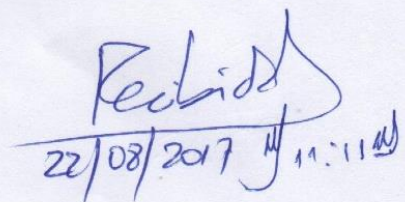 Recibido
22/08/2017 11:11